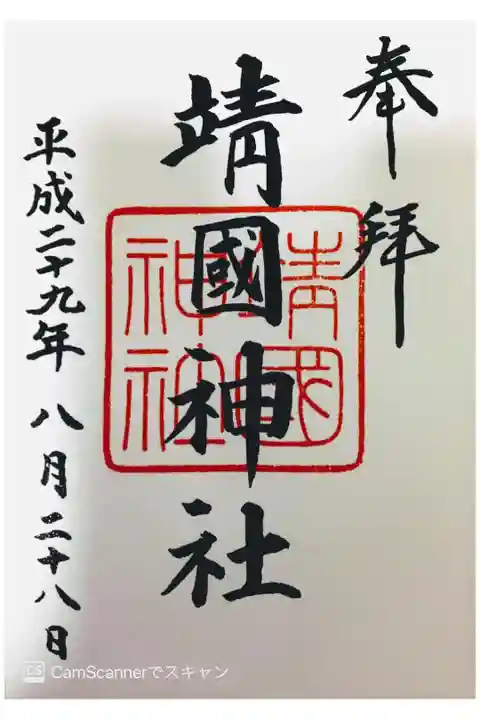 奉拝
靖國神社
靖國
神社
平成二十九年八月二十八日
CS CamScannerでスキャン